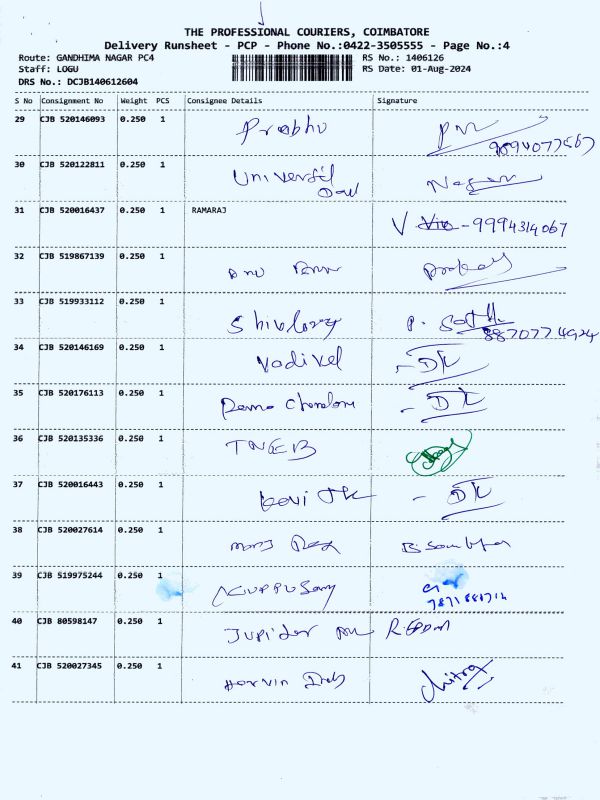 THE PROFESSIONAL COURIERS, COIMBATORE
Delivery Runsheet - PCP - Phone No.:0422-3505555 - Page No.:4
Route: GANDHIMA NAGAR PC4 RS No.: 1406126
Staff: LOGU RS Date: 01-Aug-2024
DRS No.: DCJB140612604
S No Consignment No Weight PCS Consignee Details Signature
29 CJB 520146093 0.250 1 Prabhu
9894077567
30 CJB 520122811 0.250 1 Universil
31 CJB 520016437 0.250 1 RAMARAJ V - 9994314067
32 CJB 519867139 0.250 1
33 CJB 519933112 0.250 1 P.
8870774924
34 CJB 520146169 0.250 1 Vadivel - DK
35 CJB 520176113 0.250 1 - DK
36 CJB 520135336 0.250 1 TNEB
37 CJB 520016443 0.250 1 - DK
38 CJB 520027614 0.250 1
39 CJB 519975244 0.250 1 Kuppusamy
40 CJB 80598147 0.250 1 Jupider
41 CJB 520027345 0.250 1 Chitra